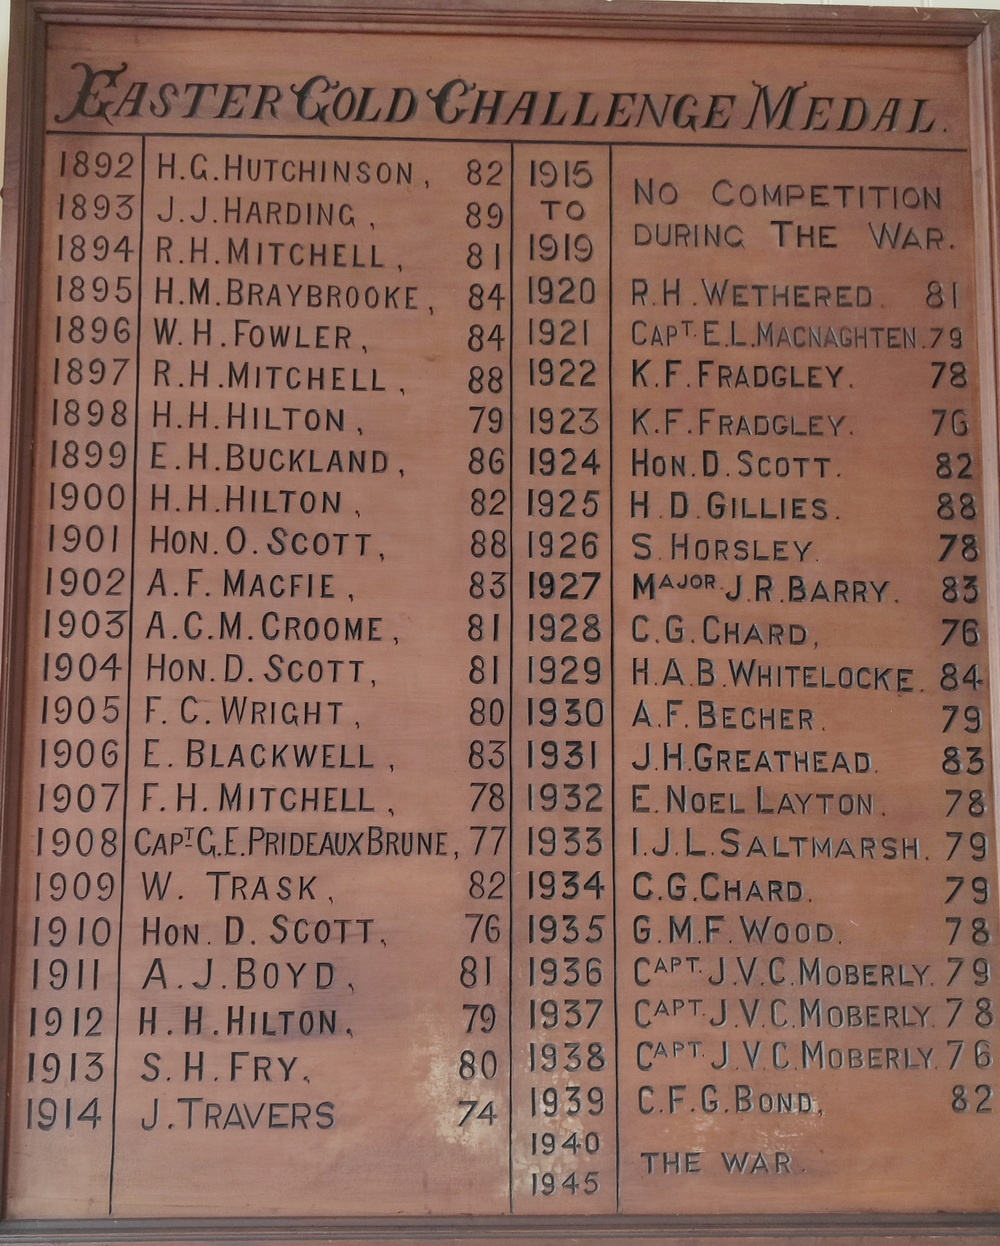 EASTER GOLD CHALLENGE MEDAL.
1892 H.G. HUTCHINSON, 82
1893 J.J. HARDING, 89
1894 R.H. MITCHELL, 81
1895 H.M. BRAYBROOKE, 84
1896 W.H. FOWLER, 84
1897 R.H. MITCHELL, 88
1898 H.H. HILTON, 79
1899 E.H. BUCKLAND, 86
1900 H.H. HILTON, 82
1901 HON. O. SCOTT, 88
1902 A.F. MACFIE, 83
1903 A.C.M. CROOME, 81
1904 HON. D. SCOTT, 81
1905 F.C. WRIGHT, 80
1906 E. BLACKWELL, 83
1907 F.H. MITCHELL, 78
1908 CAPT. G.E. PRIDEAUX BRUNE, 77
1909 W. TRASK, 82
1910 HON. D. SCOTT, 76
1911 A.J. BOYD, 81
1912 H.H. HILTON, 79
1913 S.H. FRY, 80
1914 J. TRAVERS 74
1915
TO
1919
NO COMPETITION
DURING THE WAR.
1920 R.H. WETHERED. 81
1921 CAPT. E.L. MACNAGHTEN. 79
1922 K.F. FRADGLEY. 78
1923 K.F. FRADGLEY. 76
1924 HON. D. SCOTT. 82
1925 H.D. GILLIES. 88
1926 S. HORSLEY. 78
1927 MAJOR. J.R. BARRY. 83
1928 C.G. CHARD, 76
1929 H.A.B. WHITELOCKE. 84
1930 A.F. BECHER. 79
1931 J.H. GREATHEAD. 83
1932 E. NOEL LAYTON. 78
1933 I.J.L. SALTMARSH. 79
1934 C.G. CHARD. 79
1935 G.M.F. WOOD. 78
1936 CAPT. J.V.C. MOBERLY. 79
1937 CAPT. J.V.C. MOBERLY. 78
1938 CAPT. J.V.C. MOBERLY. 76
1939 C.F.G. BOND, 82
1940
1945
THE WAR.